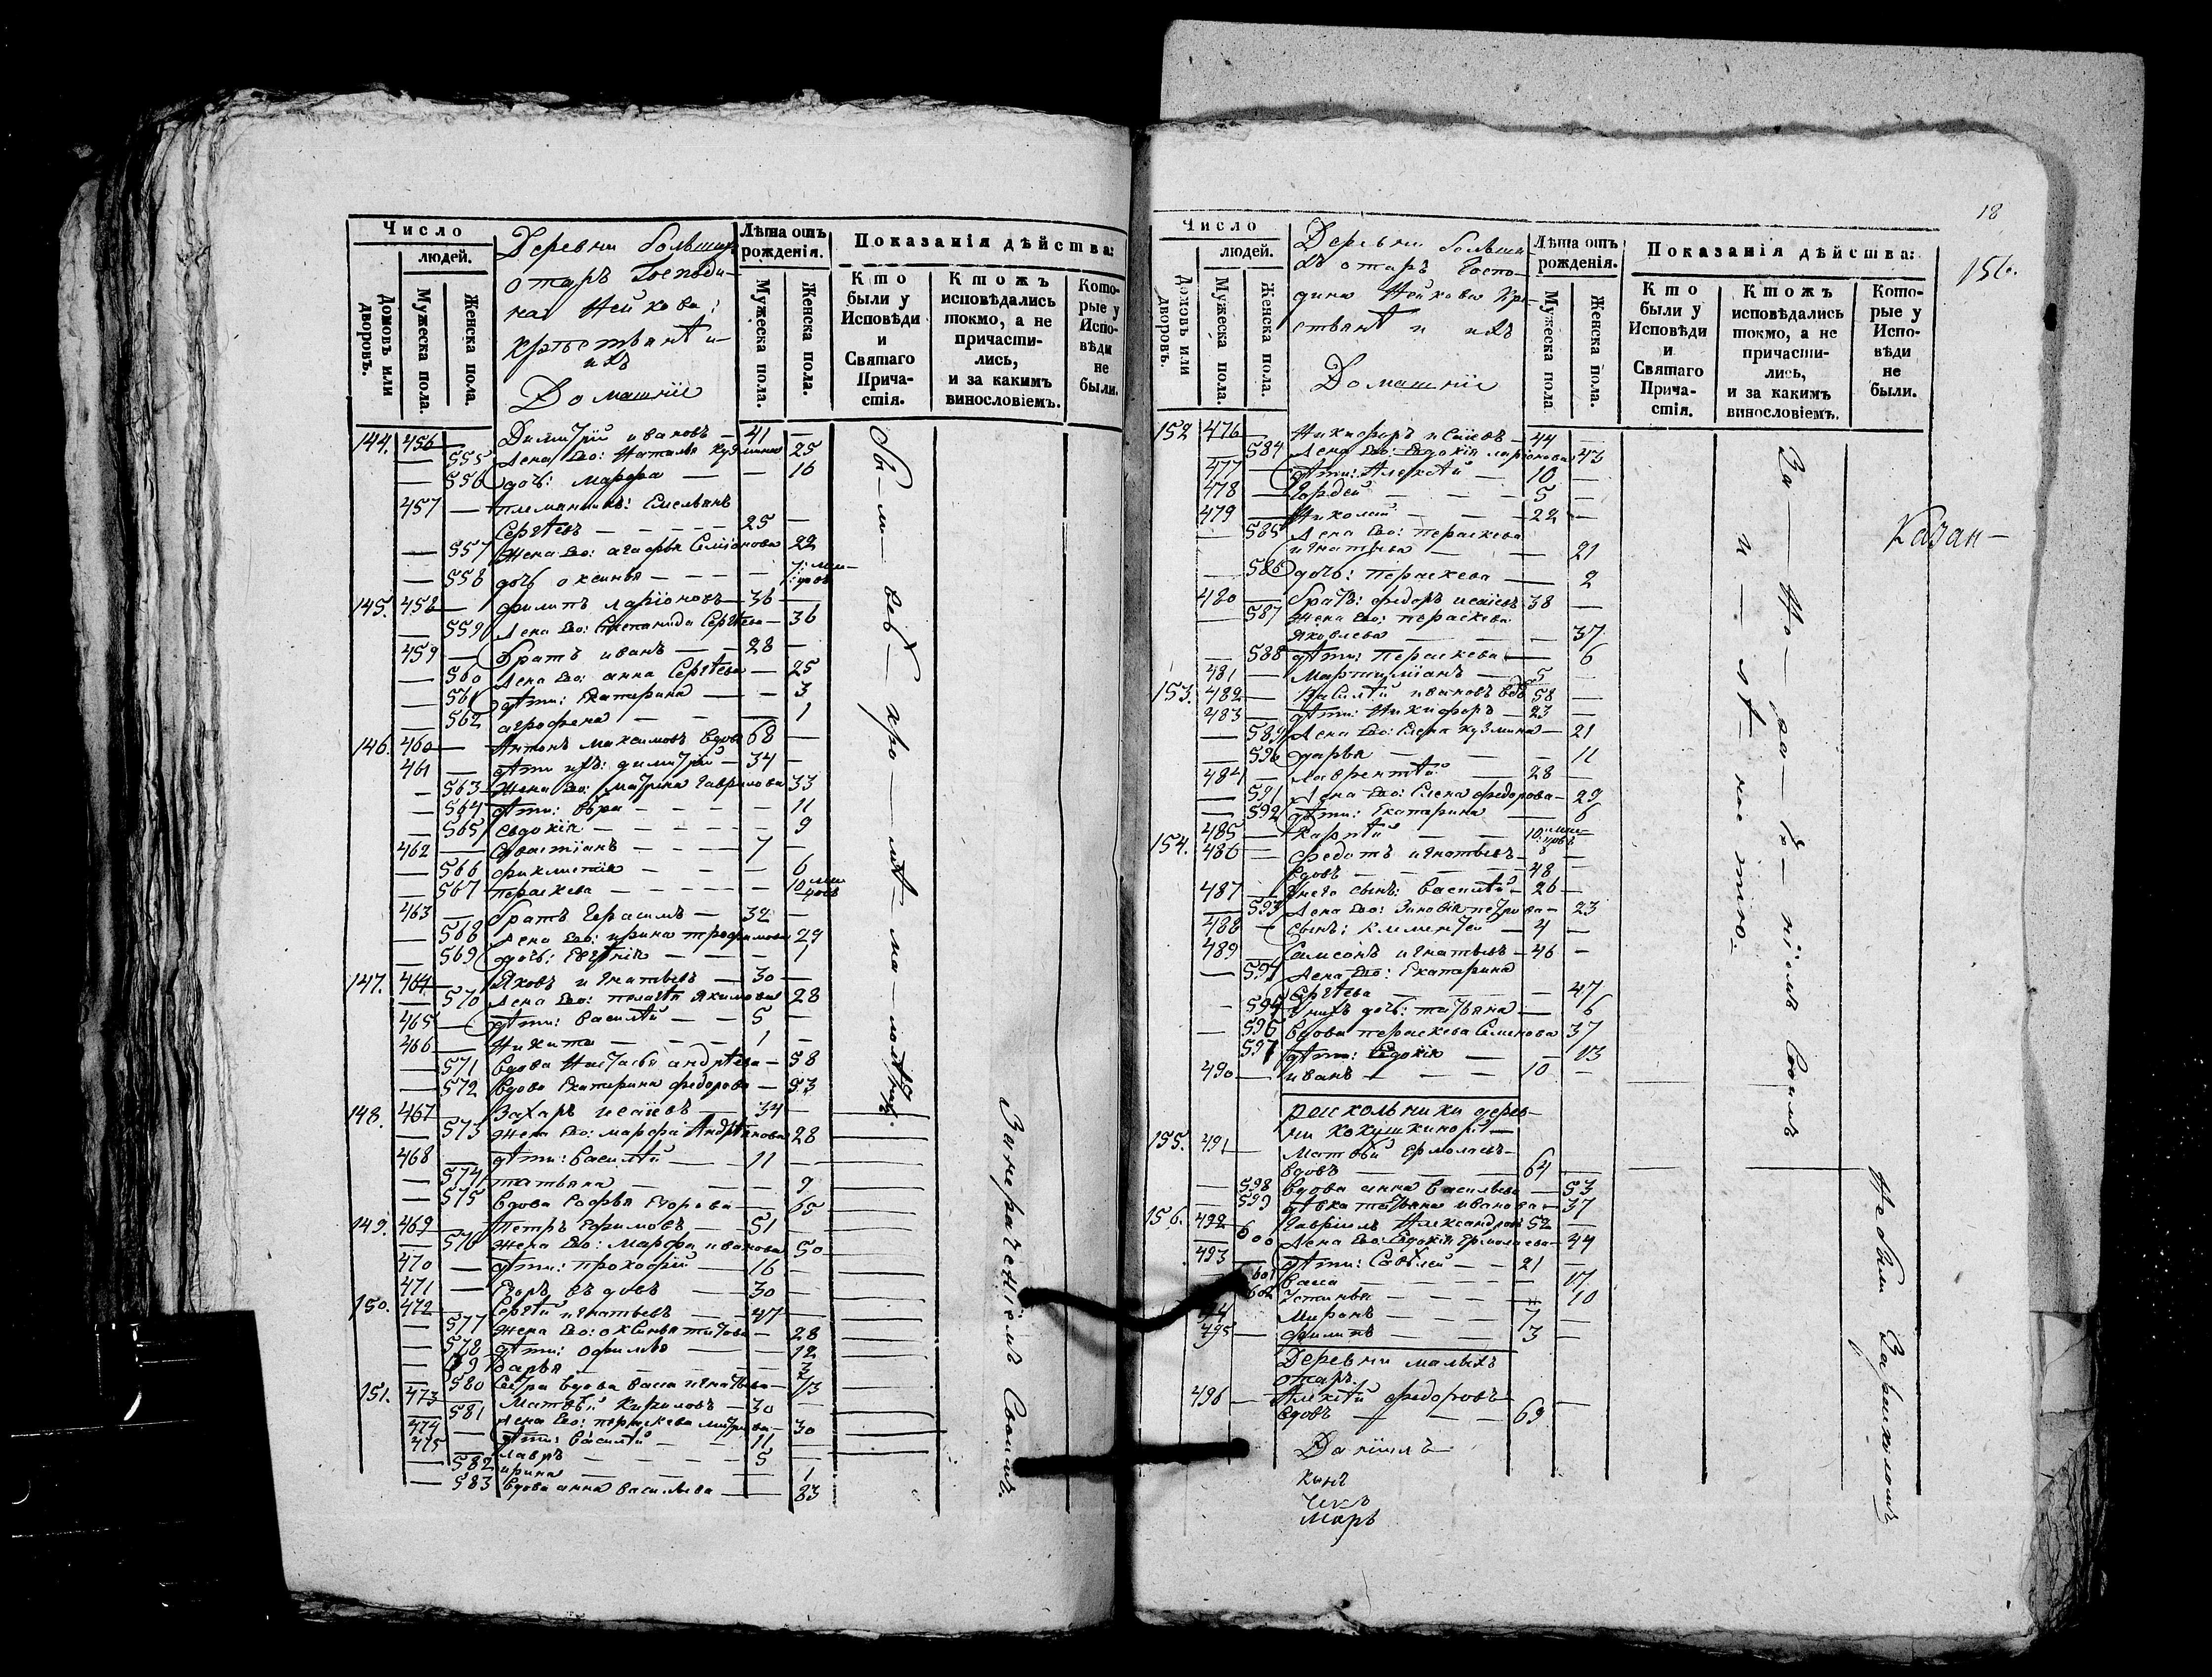 Число
людей.
Домовъ или дворовъ.
Мужеска пола.
Женска пола.
Деревни большихъ
отаръ Господи-
на Нейкова:
крестьянѣ и
ихъ
Домашніе
Лѣта отъ рожденія.
Мужеска пола.
Женска пола.
Показанія дѣйства:
Кто были у Исповѣди и Святаго Прича-стія.
Ктожъ исповѣдались токмо, а не причасти-лись, и за какимъ винословіемъ.
Кото-рые у Испо-вѣди не были.
144. 456 — Димитрій ивановъ — 41 —
— 555 Жена Его: Наталья кузмина 25
— 556 дочь: Марфа — — 16
457 — племянникъ: Емельянъ
Сергѣевъ — — — — 25 —
— 557 Жена Его: агафья Симіонова 22
— 558 дочь оксинья — — — —
145. 458 — филипъ ларіоновъ — 36 —
— 559 Жена Его: Степанида Сергѣева — 36
459 — братъ иванъ — — 28 —
— 560 Жена Его: анна Сергѣева — 25
— 561 дѣти: Екатерина — — 3
— 562 агрофена — — — 1
146. 460 — Антонъ Максимовъ вдовъ 68 —
461 — дѣти ихъ: димитрій — 34 —
— 563 Жена Его: матрена Гаврилова 33
— 564 дѣти: вѣра — — — 11
— 565 Евдокія — — — — — 9
462 — Савастіанъ — — — — 7 —
— 566 фиклистія — — — 6
— 567 пераскева — — — — — 10
463 — братъ Герасимъ — 32 —
— 568 Жена Его: ирина трофимова 29
— 569 дочь: Евгѣнія — — — 1
147. 464 — Яковъ игнатьевъ — 30 —
— 570 Жена Его: пелагѣя Якимова 28
465 — дѣти: василѣй — — 5 —
466 — Никита — — — 1 —
— 571 вдова Настасья андрѣева — 58
— 572 вдова Екатерина федорова — 53
148. 467 — Захаръ исаіевъ — 34 —
— 573 Жена Его: марфа Андрѣянова 28
468 — дѣти: василѣй — — 11 —
— 574 татьяна — — — — 9
— 575 вдова Софья Егорова — — 65
149. 469 — Петръ Ефимовъ — 51 —
— 576 Жена Его: Марфа иванова 50
470 — дѣти: прокофій — — 16 —
471 — Егоръ вдовъ — 30 —
150. 472 — Сергѣй игнатьевъ — 47 —
— 577 Жена Его: оксинья титова — 28
— 578 дѣти: офимья — — 12
— 579 дарья — — — — 3
— 580 Сестра вдова васа игнатьева —
151. 473 — Матвѣй Кириловъ — 30 —
— 581 Жена Его: пераскева митриева — 30
474 — дѣти: василѣй — — 11 —
475 — лавръ — — — — 5 —
— 582 ирина — — — — 1
— 583 вдова анна васильева — 83
Бы — ли — всѣ — кро — мѣ — ма — лолѣтныхъ.
Занерачѣніемъ Своимъ.
18
156.
Казан —
Число
людей.
Домовъ или дворовъ.
Мужеска пола.
Женска пола.
Деревни большихъ
отаръ Госпо-
дина Нейкова Кре-
стьянѣ и ихъ
Домашніе
Лѣта отъ рожденія.
Мужеска пола
Женска пола.
Показанія дѣйства:
Кто были у Исповѣди и Святаго Прича-стія.
Ктожъ исповѣдались токмо, а не причасти-лись, и за какимъ винословіемъ.
Кото-рые у Испо-вѣди не были.
152 476 — Никифоръ исаіевъ — 44 —
— 584 Жена Его: Евдокія ларіонова 43
477 — дѣти: Алексѣй — 10 —
478 — Гордей — — — 5 —
479 — Николай — — — 22 —
— 585 Жена Его: пераскева
игнатьева — — — 21
— 586 дочь: Пераскева — — 2
480 — братъ: федоръ исаіевъ 38 —
— 587 Жена Его: пераскева
яковлева — — — 37
— 588 дѣти: Пераскева — 6
481 — Мартимианъ — — 5 —
153. 482 — Василѣй ивановъ вдв 58 —
483 — дѣти: Никифоръ — 23 —
— 589 Жена Его: Елена кузмина — 21
— 590 дарья — — — 11
484 — лаврентѣй — — 28 —
— 591 Жена Его: Елена федорова — 29
— 592 дѣти: Екатерина — 6
485 — Карпѣй — — 10
154. 486 — федотъ игнатьевъ —
вдовъ — — — 48 —
487 — унего сынъ: василѣй — 26 —
— 593 Жена Его: Зиновія петрова — 23
488 — сынъ: климентей — 4 —
489 — Самсонъ игнатьевъ — 46 —
— 594 Жена Его: Екатерина
Сергѣева — — 47
— 595 унихъ дочь: татьяна — 6
— 596 вдова пераскева Семенова 37
— 597 дѣти: Евдокія — — 13
490 — иванъ — — — 10 —
раскольники дерев-
ни кокушкиной —
155. 491 — Матвѣй Ермолаевъ —
вдовъ — — — 64 —
— 598 вдова анна васильева — 53
— 599 дѣвка татьяна иванова — 37
156. 492 — Гавріилъ Александровъ 52 —
— 600 Жена Его: Евдокія Ермолаева — 44
493 — дѣти: Савѣлей — — 21 —
601 васа — — — — 17
602 Устинья — — — — 10
494 Миронъ — — — 7 —
495 — филипъ — — — 3 —
Деревни малыхъ
отаръ.
496 — Алексѣй федоровъ —
вдовъ — — — 69 —
Даніилъ
За — Не — ра — чѣ — ніемъ Своимъ
Небыли Зарасколомъ